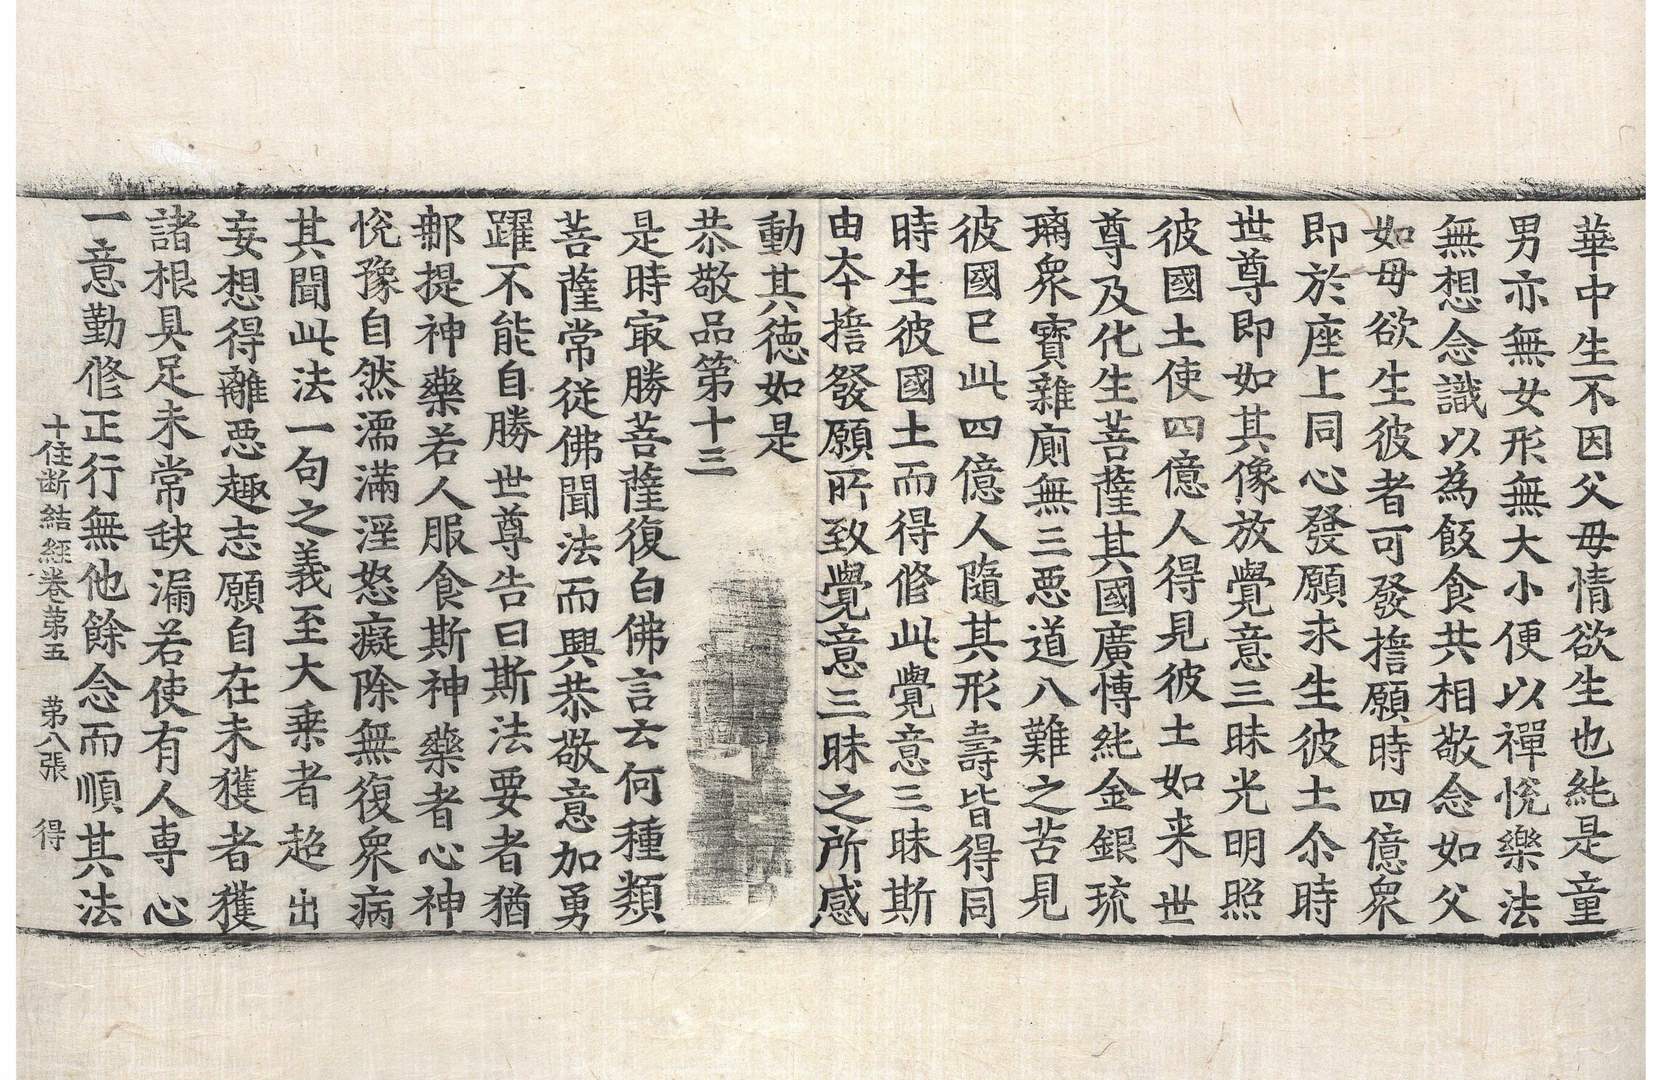 華中生不因父母情欲生也純是童
男亦無女形無大小便以禪悅樂法
無想念識以為飯食共相敬念如父
如母欲生彼者可發擔願時四億衆
即於座上同心發願求生彼土尒時
世尊即如其像放覺意三昧光明照
彼國土使四億人得見彼土如来世
尊及化生菩薩其國廣博純金銀琉
璃衆寶雜廁無三惡道八難之苦見
彼國已此四億人隨其形壽皆得同
時生彼國土而得修此覺意三昧斯
由本擔發願所致覺意三昧之所感
動其德如是
恭敬品第十三
是時㝡勝菩薩復白佛言云何種類
菩薩常從佛聞法而興恭敬意加勇
躍不能自勝世尊告曰斯法要者猶
郍提神藥若人服食斯神藥者心神
悅豫自然濡滿淫怒癡除無復衆病
其聞此法一句之義至大乗者超出
妄想得離惡趣志願自在未獲者獲
諸根具足未常缺漏若使有人專心
一意勤修正行無他餘念而順其法
十住断結經卷第五 第八張 得